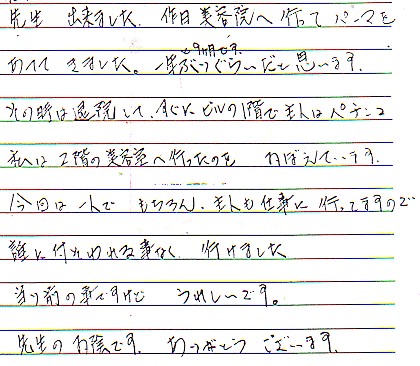 先生 出来ました。昨日美容院へ行ってパーマを
あてて きました。一年ぶりぐらいだと思います。
その時は退院して、すぐにビルの1階で主人はパチンコ
私は2階の美容室へ行ったのを おぼえています。
今回は一人で もちろん、主人も仕事に行ってますので
誰に付そわれる事なく 行けました
当り前の事ですけど うれしいです。
先生のお陰です。ありがとう ございます。